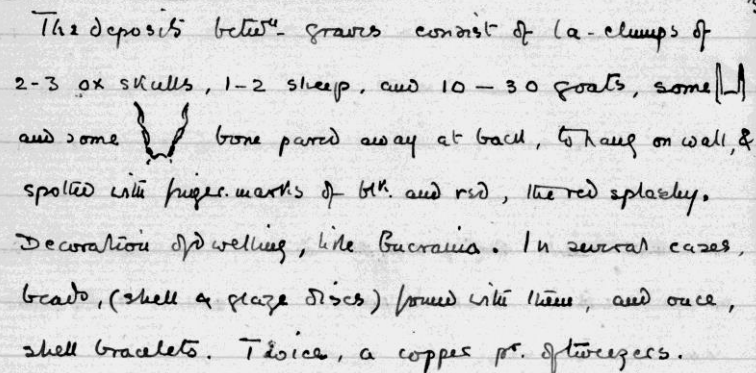 The deposits betw^n graves consist of (a - clumps of
2-3 ox skulls, 1-2 sheep, and 10 - 30 goats, some
and some bone pared away at back, to hang on wall, &
spotted with finger-marks of blk. and red, the red splashy.
Decoration of dwelling, like Bucrania. In several cases,
beads, (shell & glaze discs) found with them, and once,
shell bracelets. Twice, a copper pr. of tweezers.